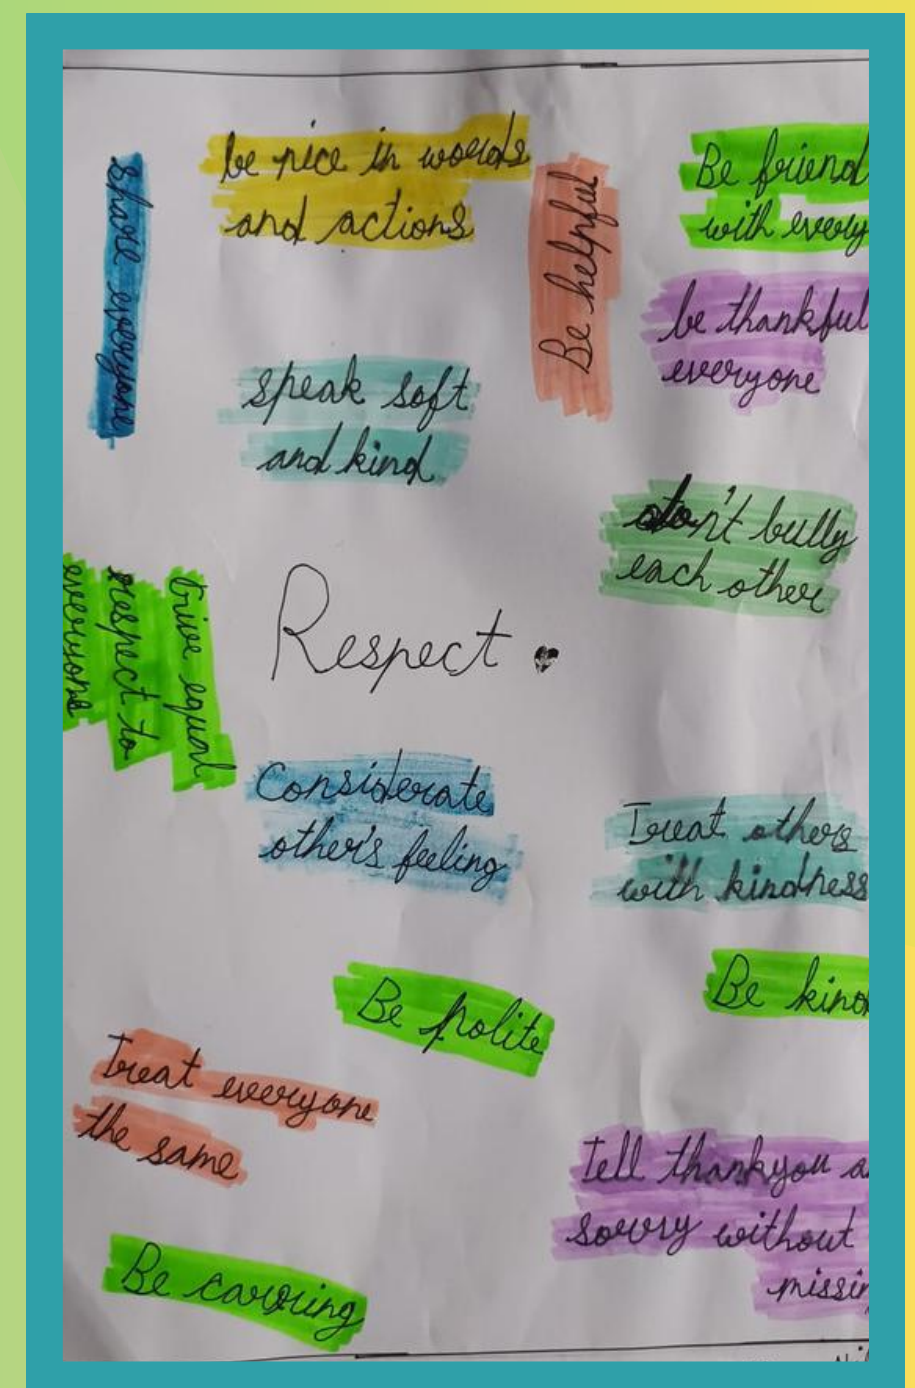 be nice in words
and actions
Be helpful
Be friend
with every
share everyone
be thankful
everyone
speak soft
and kind
don't bully
each other
Give equal
respect to
everyone
Respect
Considerate
other's feeling
Treat others
with kindness
Be polite
Be kind
Treat everyone
the same
Tell thankyou a
sorry without
missin
Be carring